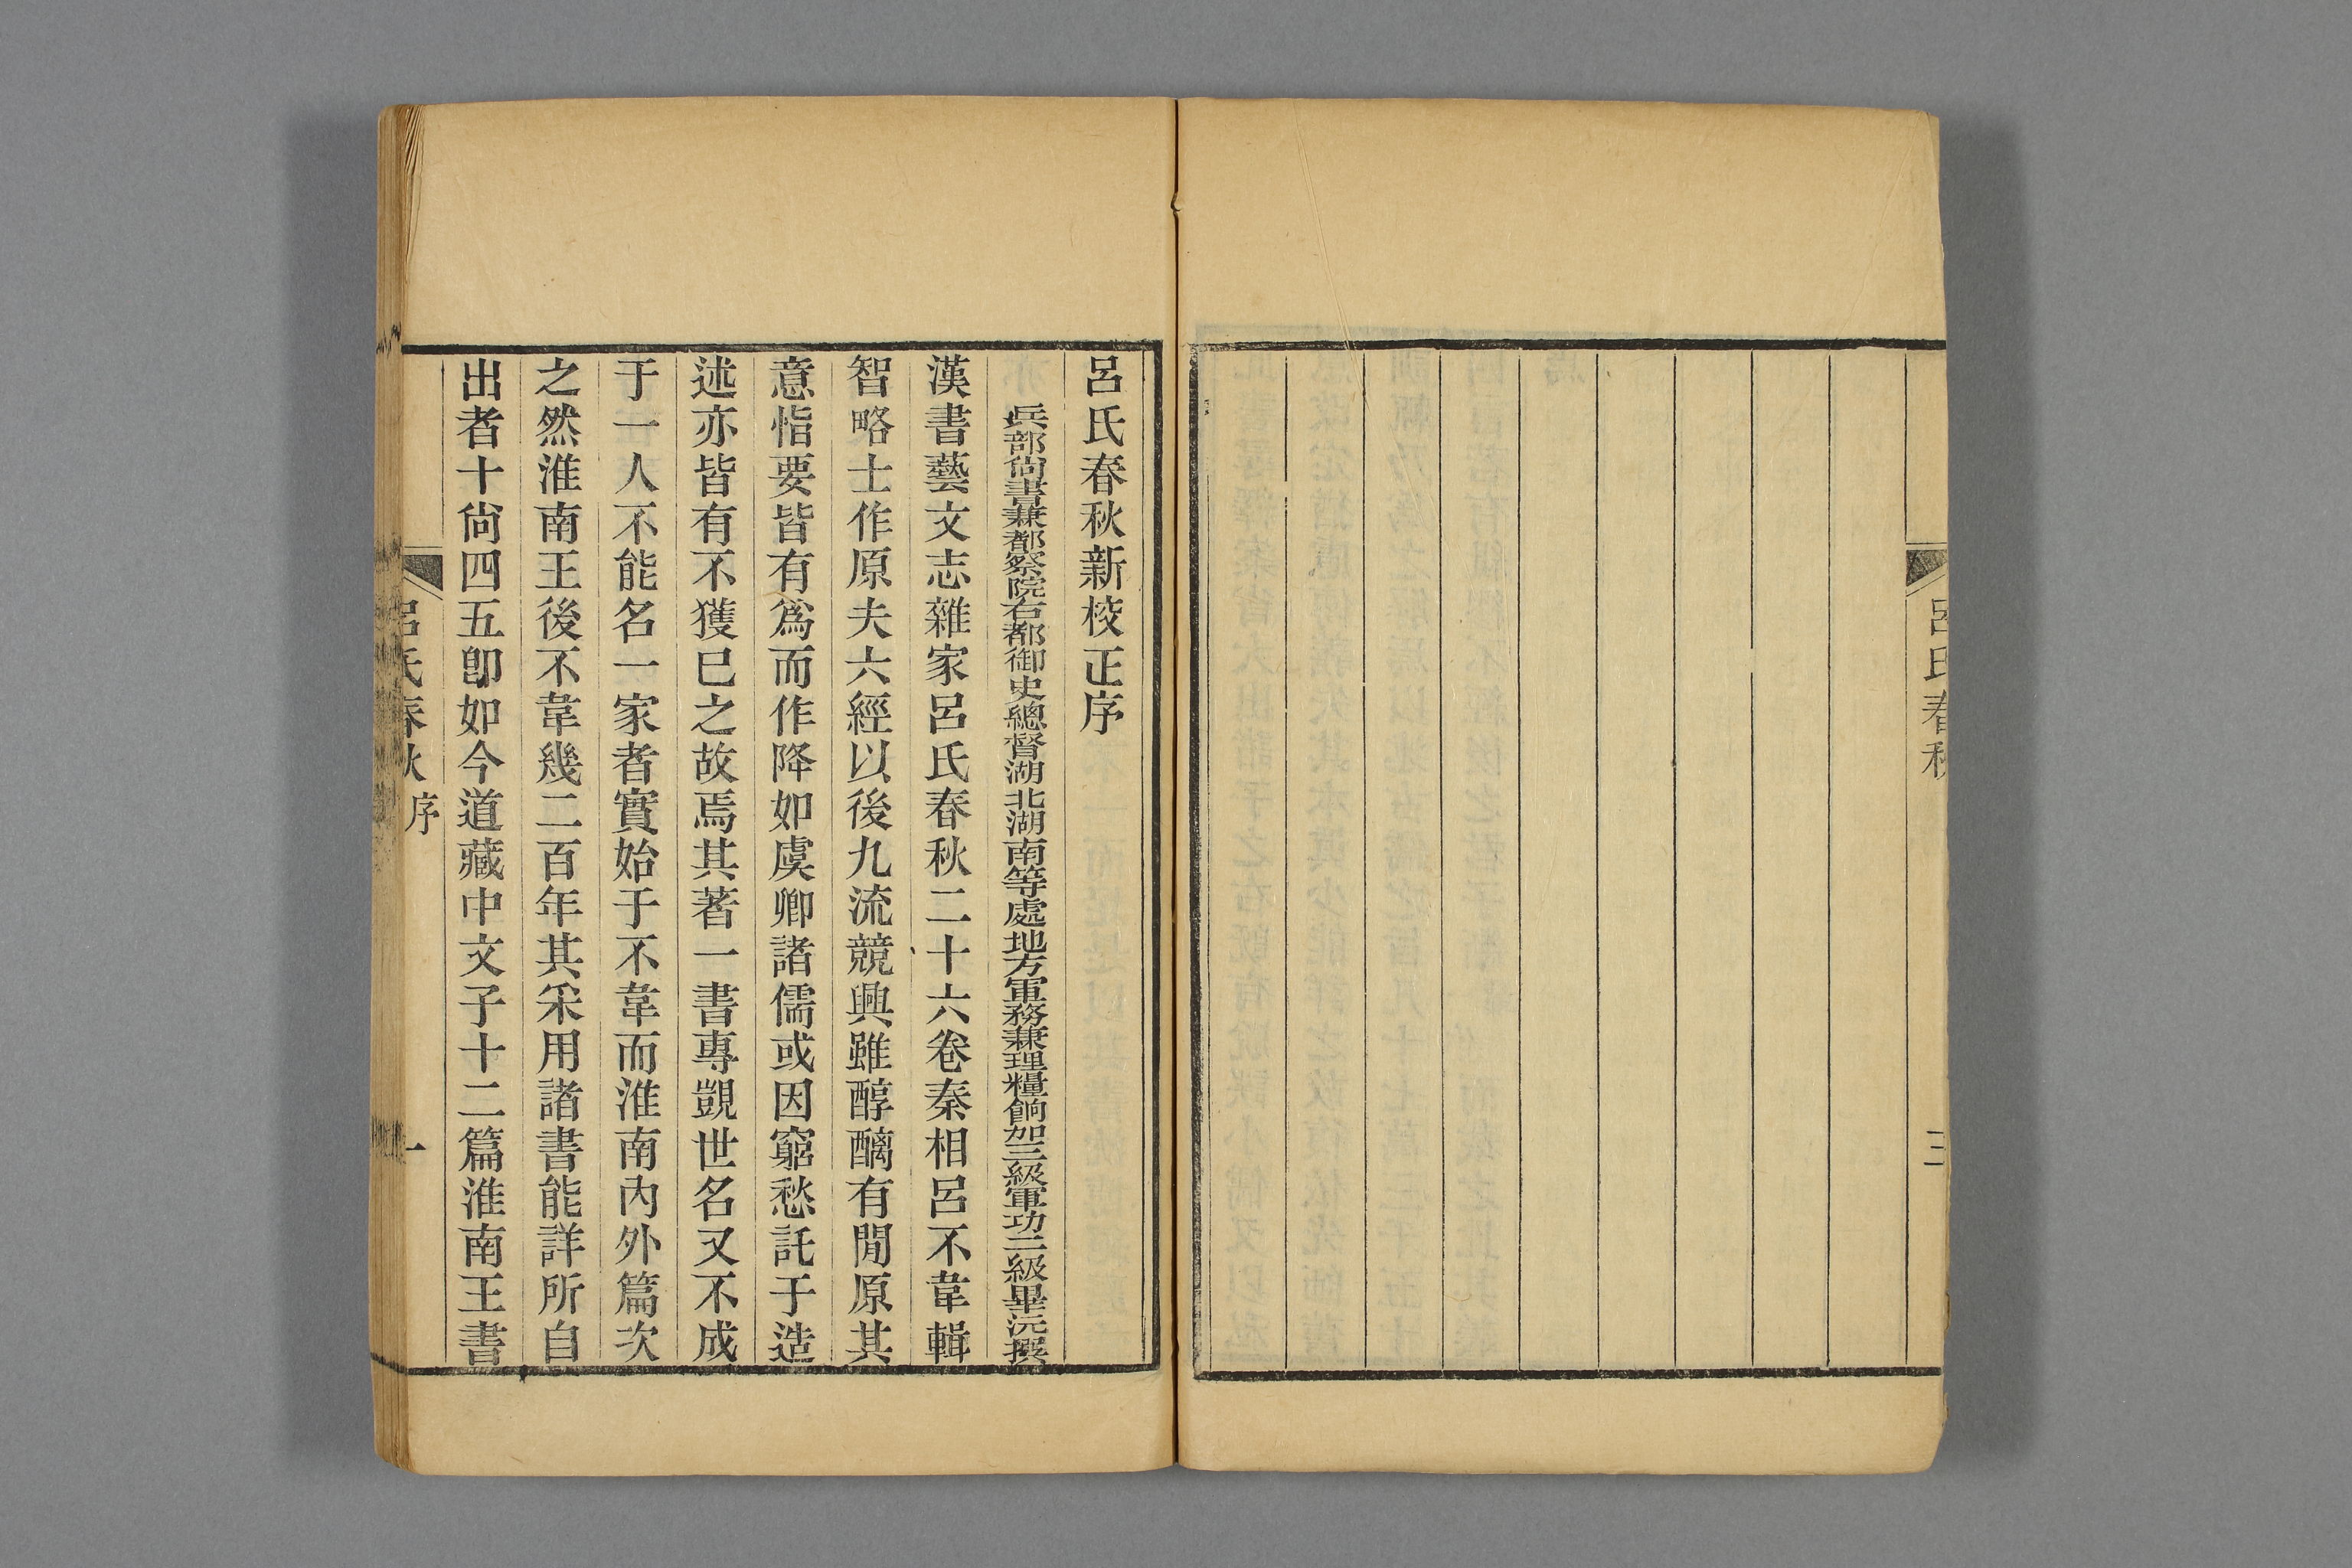 呂氏春秋
三
呂氏春秋新校正序
兵部尙書兼都察院右都御史總督湖北湖南等處地方軍務兼理糧餉加三級軍功二級畢沅撰
漢書藝文志雜家呂氏春秋二十六卷秦相呂不韋輯
智略士作原夫六經以後九流競興雖醇醨有閒原其
意恉要皆有爲而作降如虞卿諸儒或因窮愁託于造
述亦皆有不獲已之故焉其著一書專覬世名又不成
于一人不能名一家者實始于不韋而淮南內外篇次
之然淮南王後不韋幾二百年其采用諸書能詳所自
出者十尙四五卽如今道藏中文子十二篇淮南王書
呂氏春秋 序
一